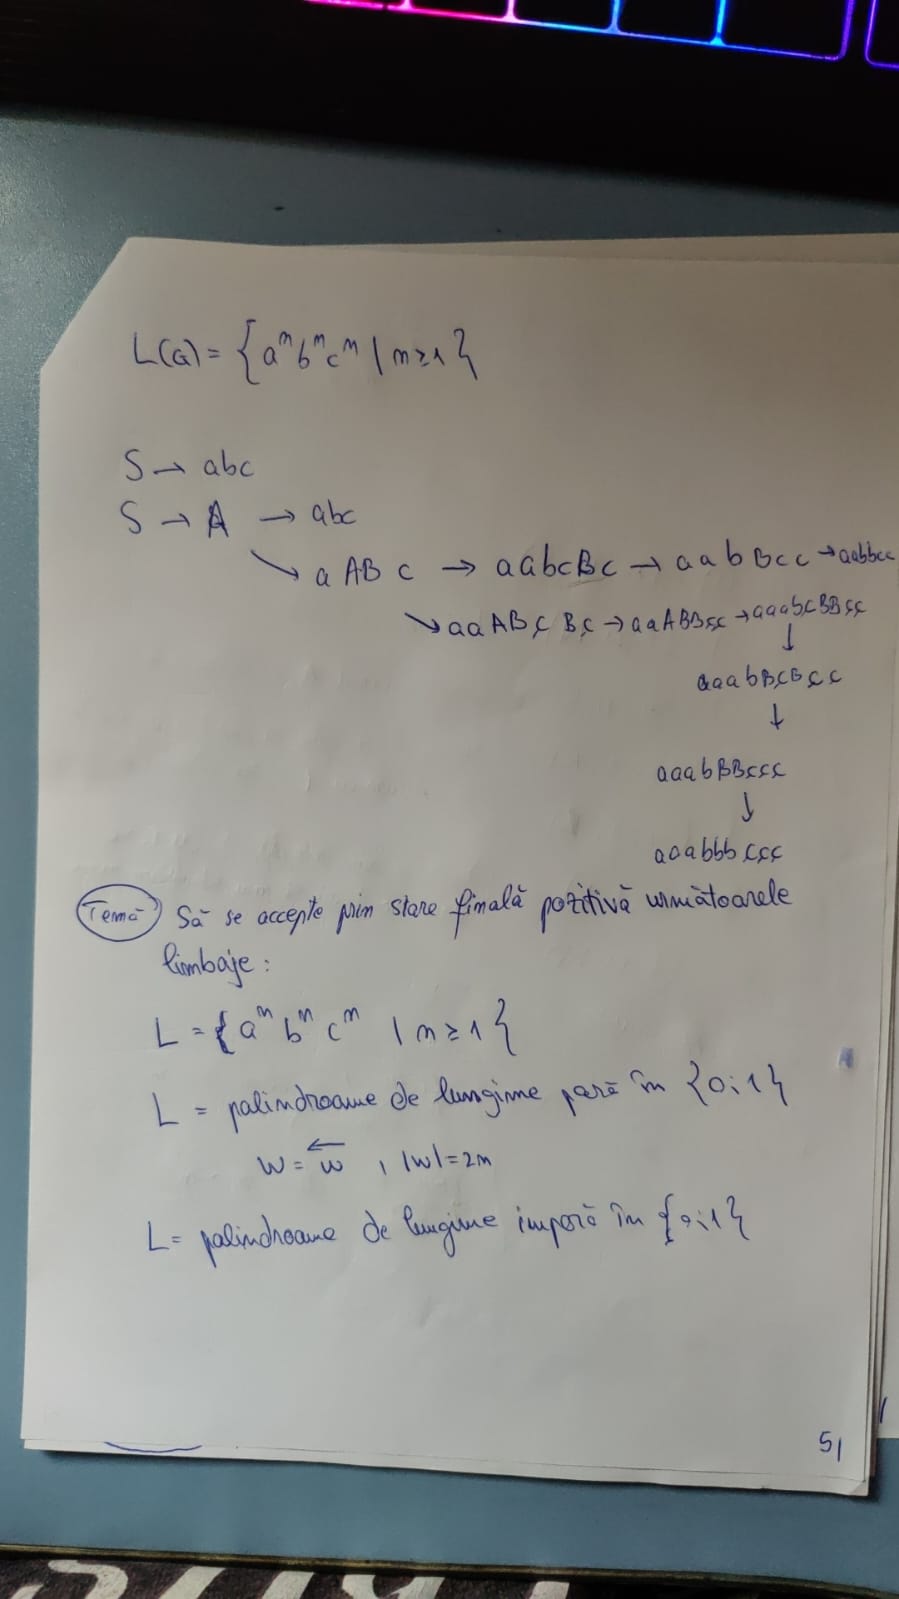 L(G) = { aⁿbⁿcⁿ | n≥1 }
S → abc
S → A → abc
↘ aABc → aabcBc → aabBcc → aabbcc
↘ aaABcBc → aaABBcc → aaabcBBcc
↓
aaabBcBcc
↓
aaabBBccc
↓
aaabbbccc
Temă Să se accepte prin stare finală pozitivă următoarele
limbaje:
L = { aⁿ bⁿ cⁿ | n ≥ 1 }
L = palindroame de lungime pară în {0;1}
w = w⃖ , |w|=2n
L = palindroame de lungime impară în {0;1}
51